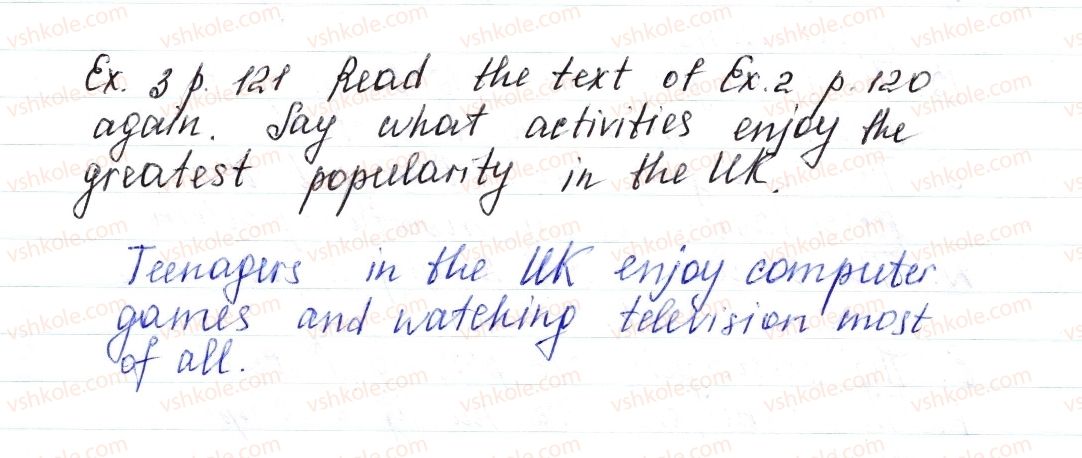 Ex. 3 p. 121 Read the text of Ex. 2 p. 120
again. Say what activities enjoy the
greatest popularity in the UK.
Teenagers in the UK enjoy computer
games and watching television most
of all.
vshkole.com